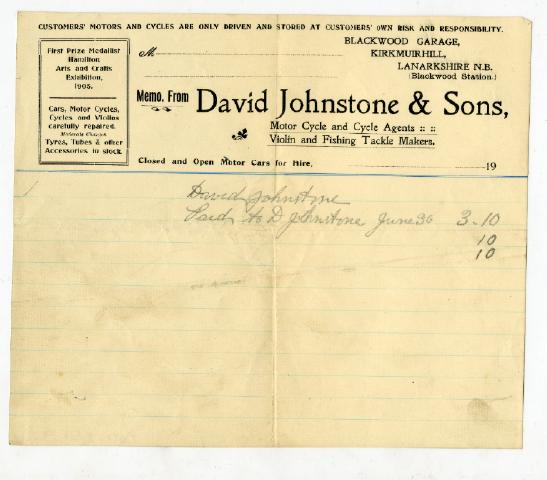 CUSTOMERS' MOTORS AND CYCLES ARE ONLY DRIVEN AND STORED AT CUSTOMERS' OWN RISK AND RESPONSIBILITY.
First Prize Medallist
Hamilton
Arts and Crafts
Exhibition,
1905.
Cars, Motor Cycles,
Cycles and Violins
carefully repaired.
Moderate Charges.
Tyres, Tubes & other
Accessories in stock.
M
BLACKWOOD GARAGE,
KIRKMUIRHILL,
LANARKSHIRE N.B.
(Blackwood Station.)
Memo. From David Johnstone & Sons,
Motor Cycle and Cycle Agents :: ::
Violin and Fishing Tackle Makers.
Closed and Open Motor Cars for Hire. 19
David Johnstone
Paid to D Johnstone June 30 3-10
10
10